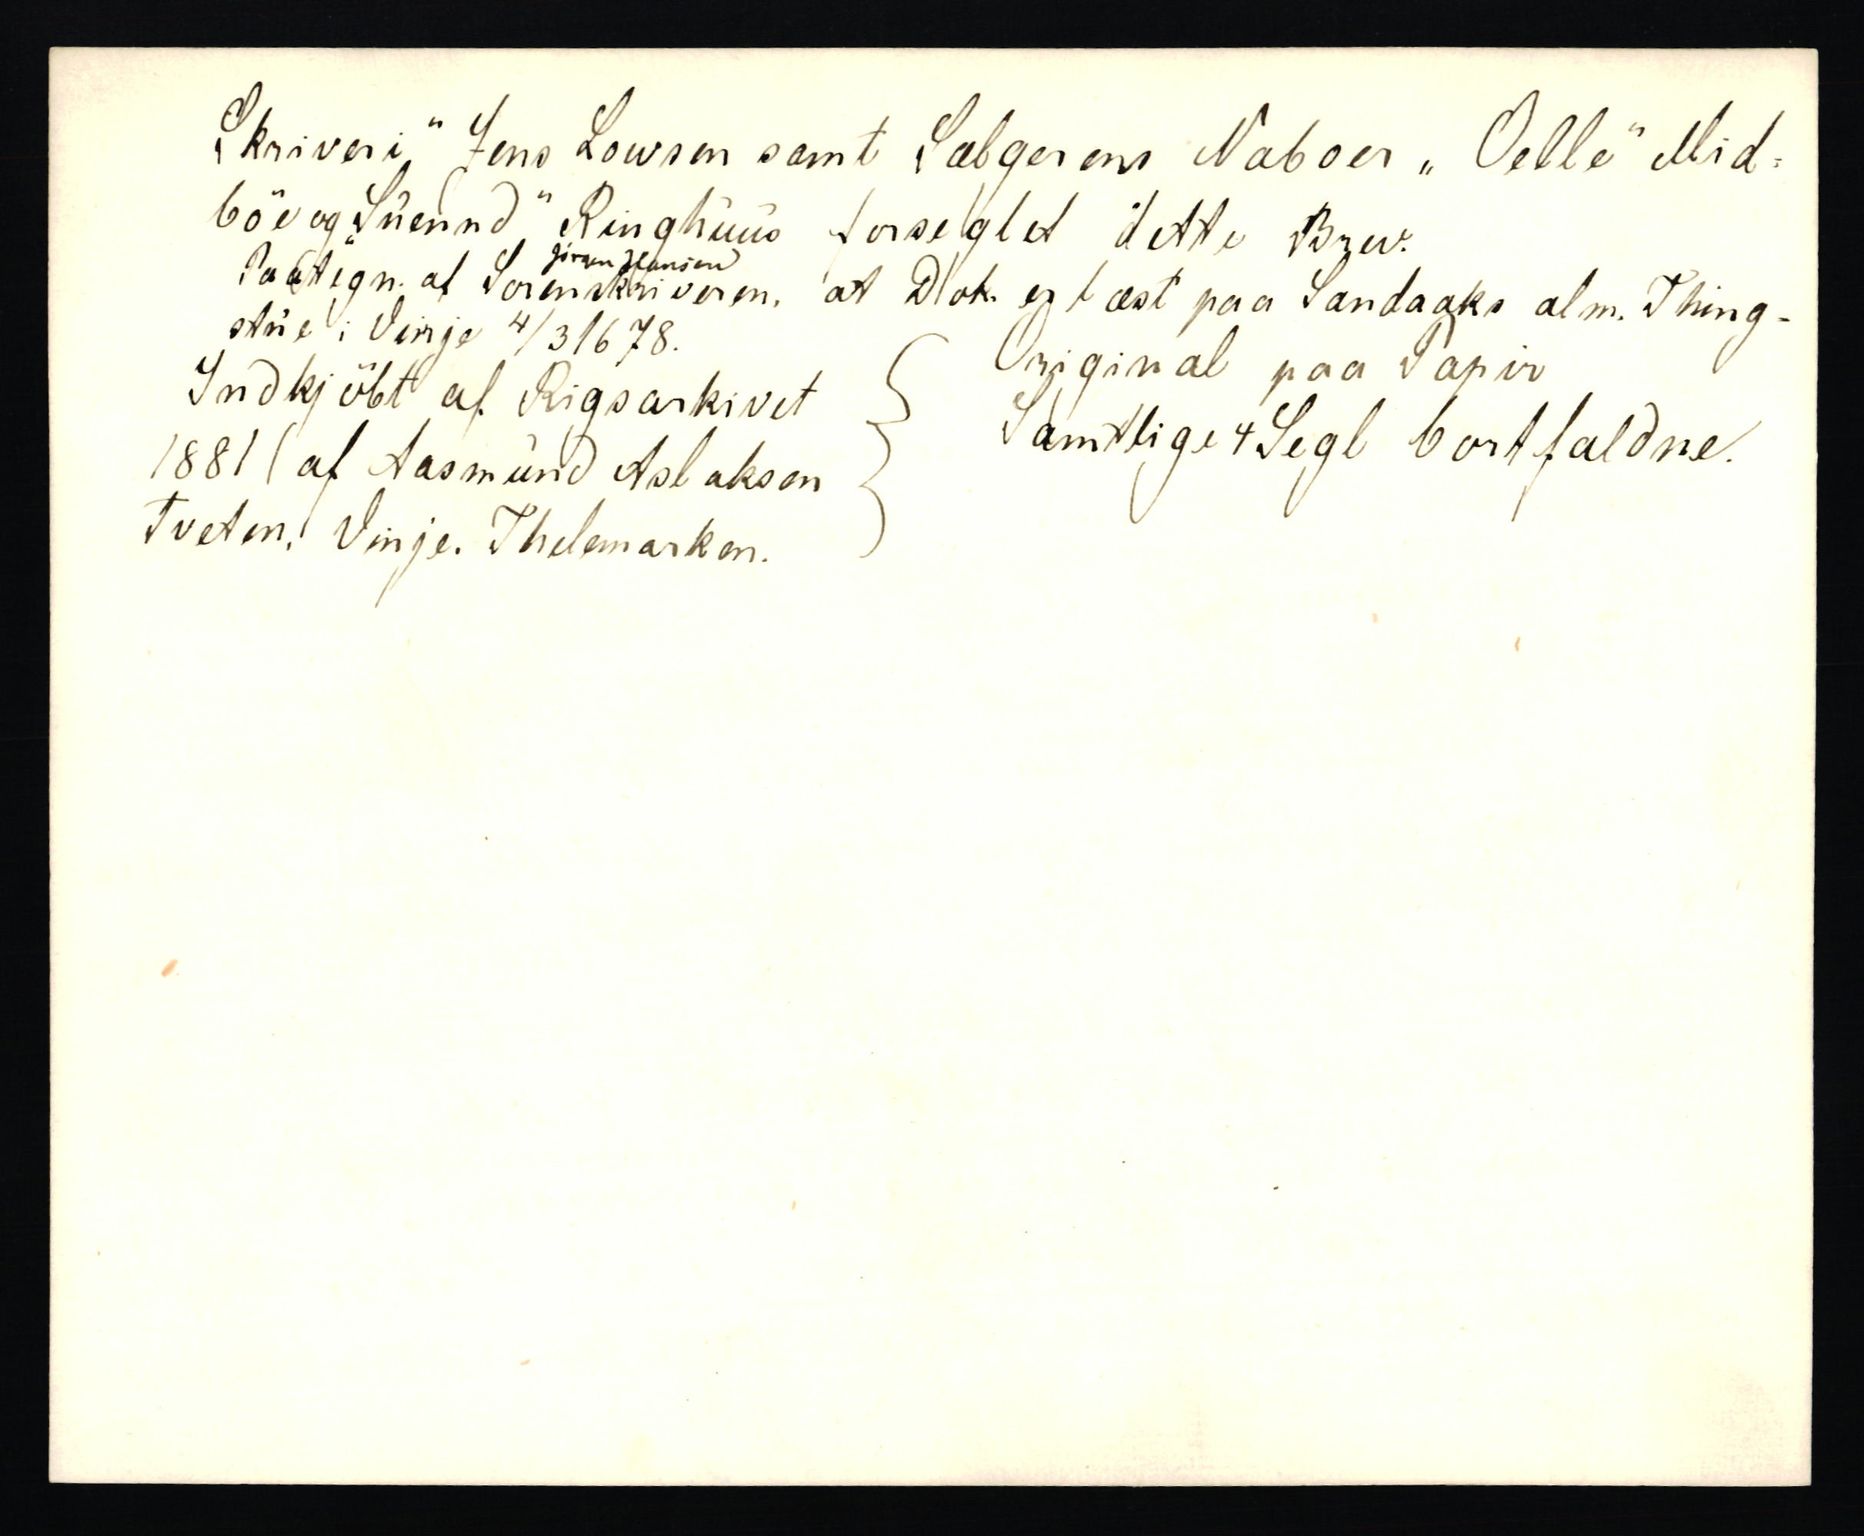 Skriveri" Jens Lowsen samt Sælgerens Naboer „Oelle" Mid-
böe og „Suennd" Ringhuus forseglet dette Brev.
Paategn. af Sorenskriveren, Jörgen Hansen at Dok. er læst paa Sandaaks alm. Thing-
stue i Vinje 4/3 1678.
Indkjöbt af Rigsarkivet
1881 (af Aasmund Aslaksen
Tveten, Vinje. Thelemarken.
Original paa Papir
Samtlige 4 Segl bortfaldne.